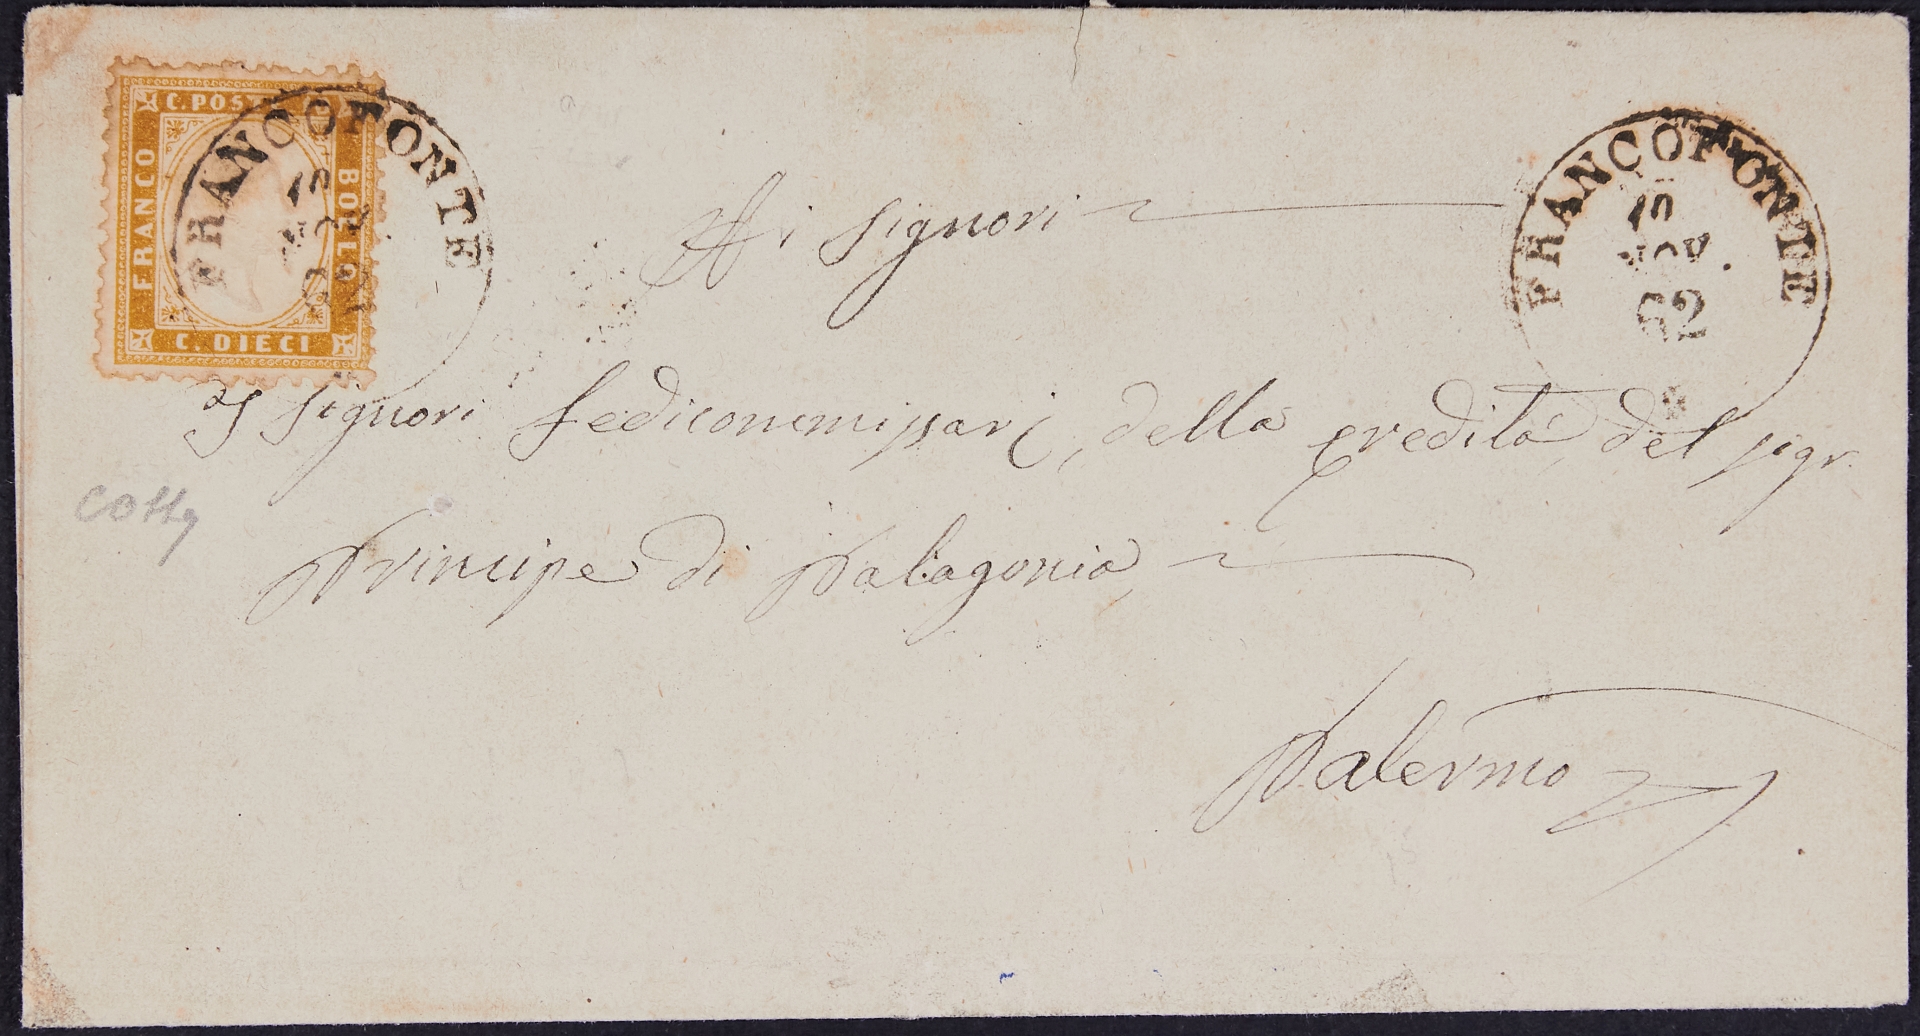 C. POST
FRANCO
BOLLO
C. DIECI
FRANCOFONTE
FRANCOFONTE
NOV
62
Ai Signori
I Signori Fedicommissarj, della eredità, del sigr.
Principe di Palagonia,
Palermo